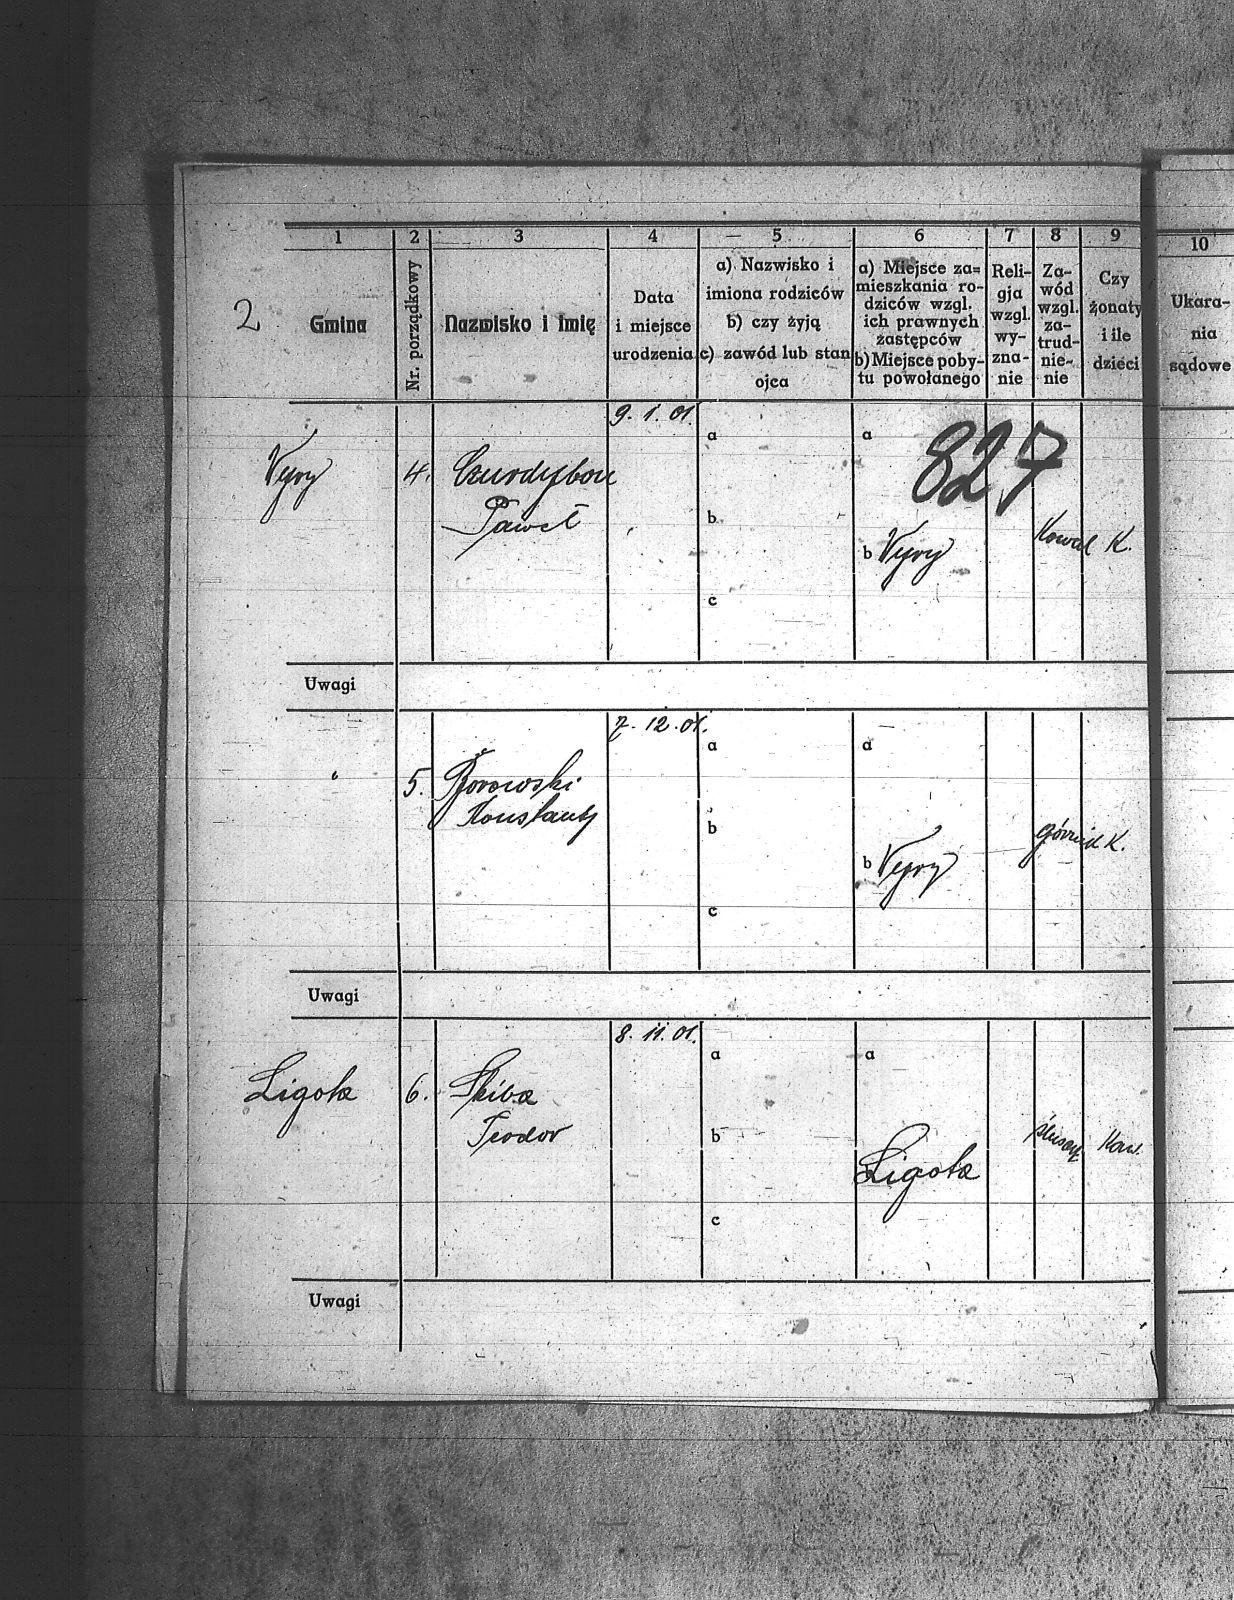 1 2 3 4 5 6 7 8 9 10
2
Gmina
Nr. porządkowy
Nazwisko i imię
Data
i miejsce
urodzenia
a) Nazwisko i
imiona rodziców
b) czy żyją
c) zawód lub stan
ojca
a) Miejsce za=
mieszkania ro-
dziców wzgl.
ich prawnych
zastępców
b) Miejsce poby-
tu powołanego
Reli-
gja
wzgl.
wy-
zna-
nie
Za-
wód
wzgl.
za-
trud-
nie-
nie
Czy
żonaty
i ile
dzieci
Ukara-
nia
sądowe
9. 1. 01.
a a 827
Wyry 4. Czurdybon
Paweł
b
b Wyry Kowal K.
c
Uwagi
7. 12. 01.
a a
" 5. Borowski
Konstanty
b
b Wyry górnik K.
c
Uwagi
8. 11. 01.
a a
Ligota 6. Skiba
Teodor
b ślusarz Kaw.
b Ligota
c
Uwagi